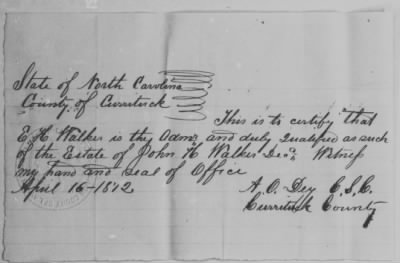 State of North Carolina
County of Currituck
This is to certify that
E. H. Walker is the Admr and duly Qualified as such
of the Estate of John H Walker Decd Witness
my hand and seal of Office
April 16-1872 A. O. Dey C.S.C.
Currituck County